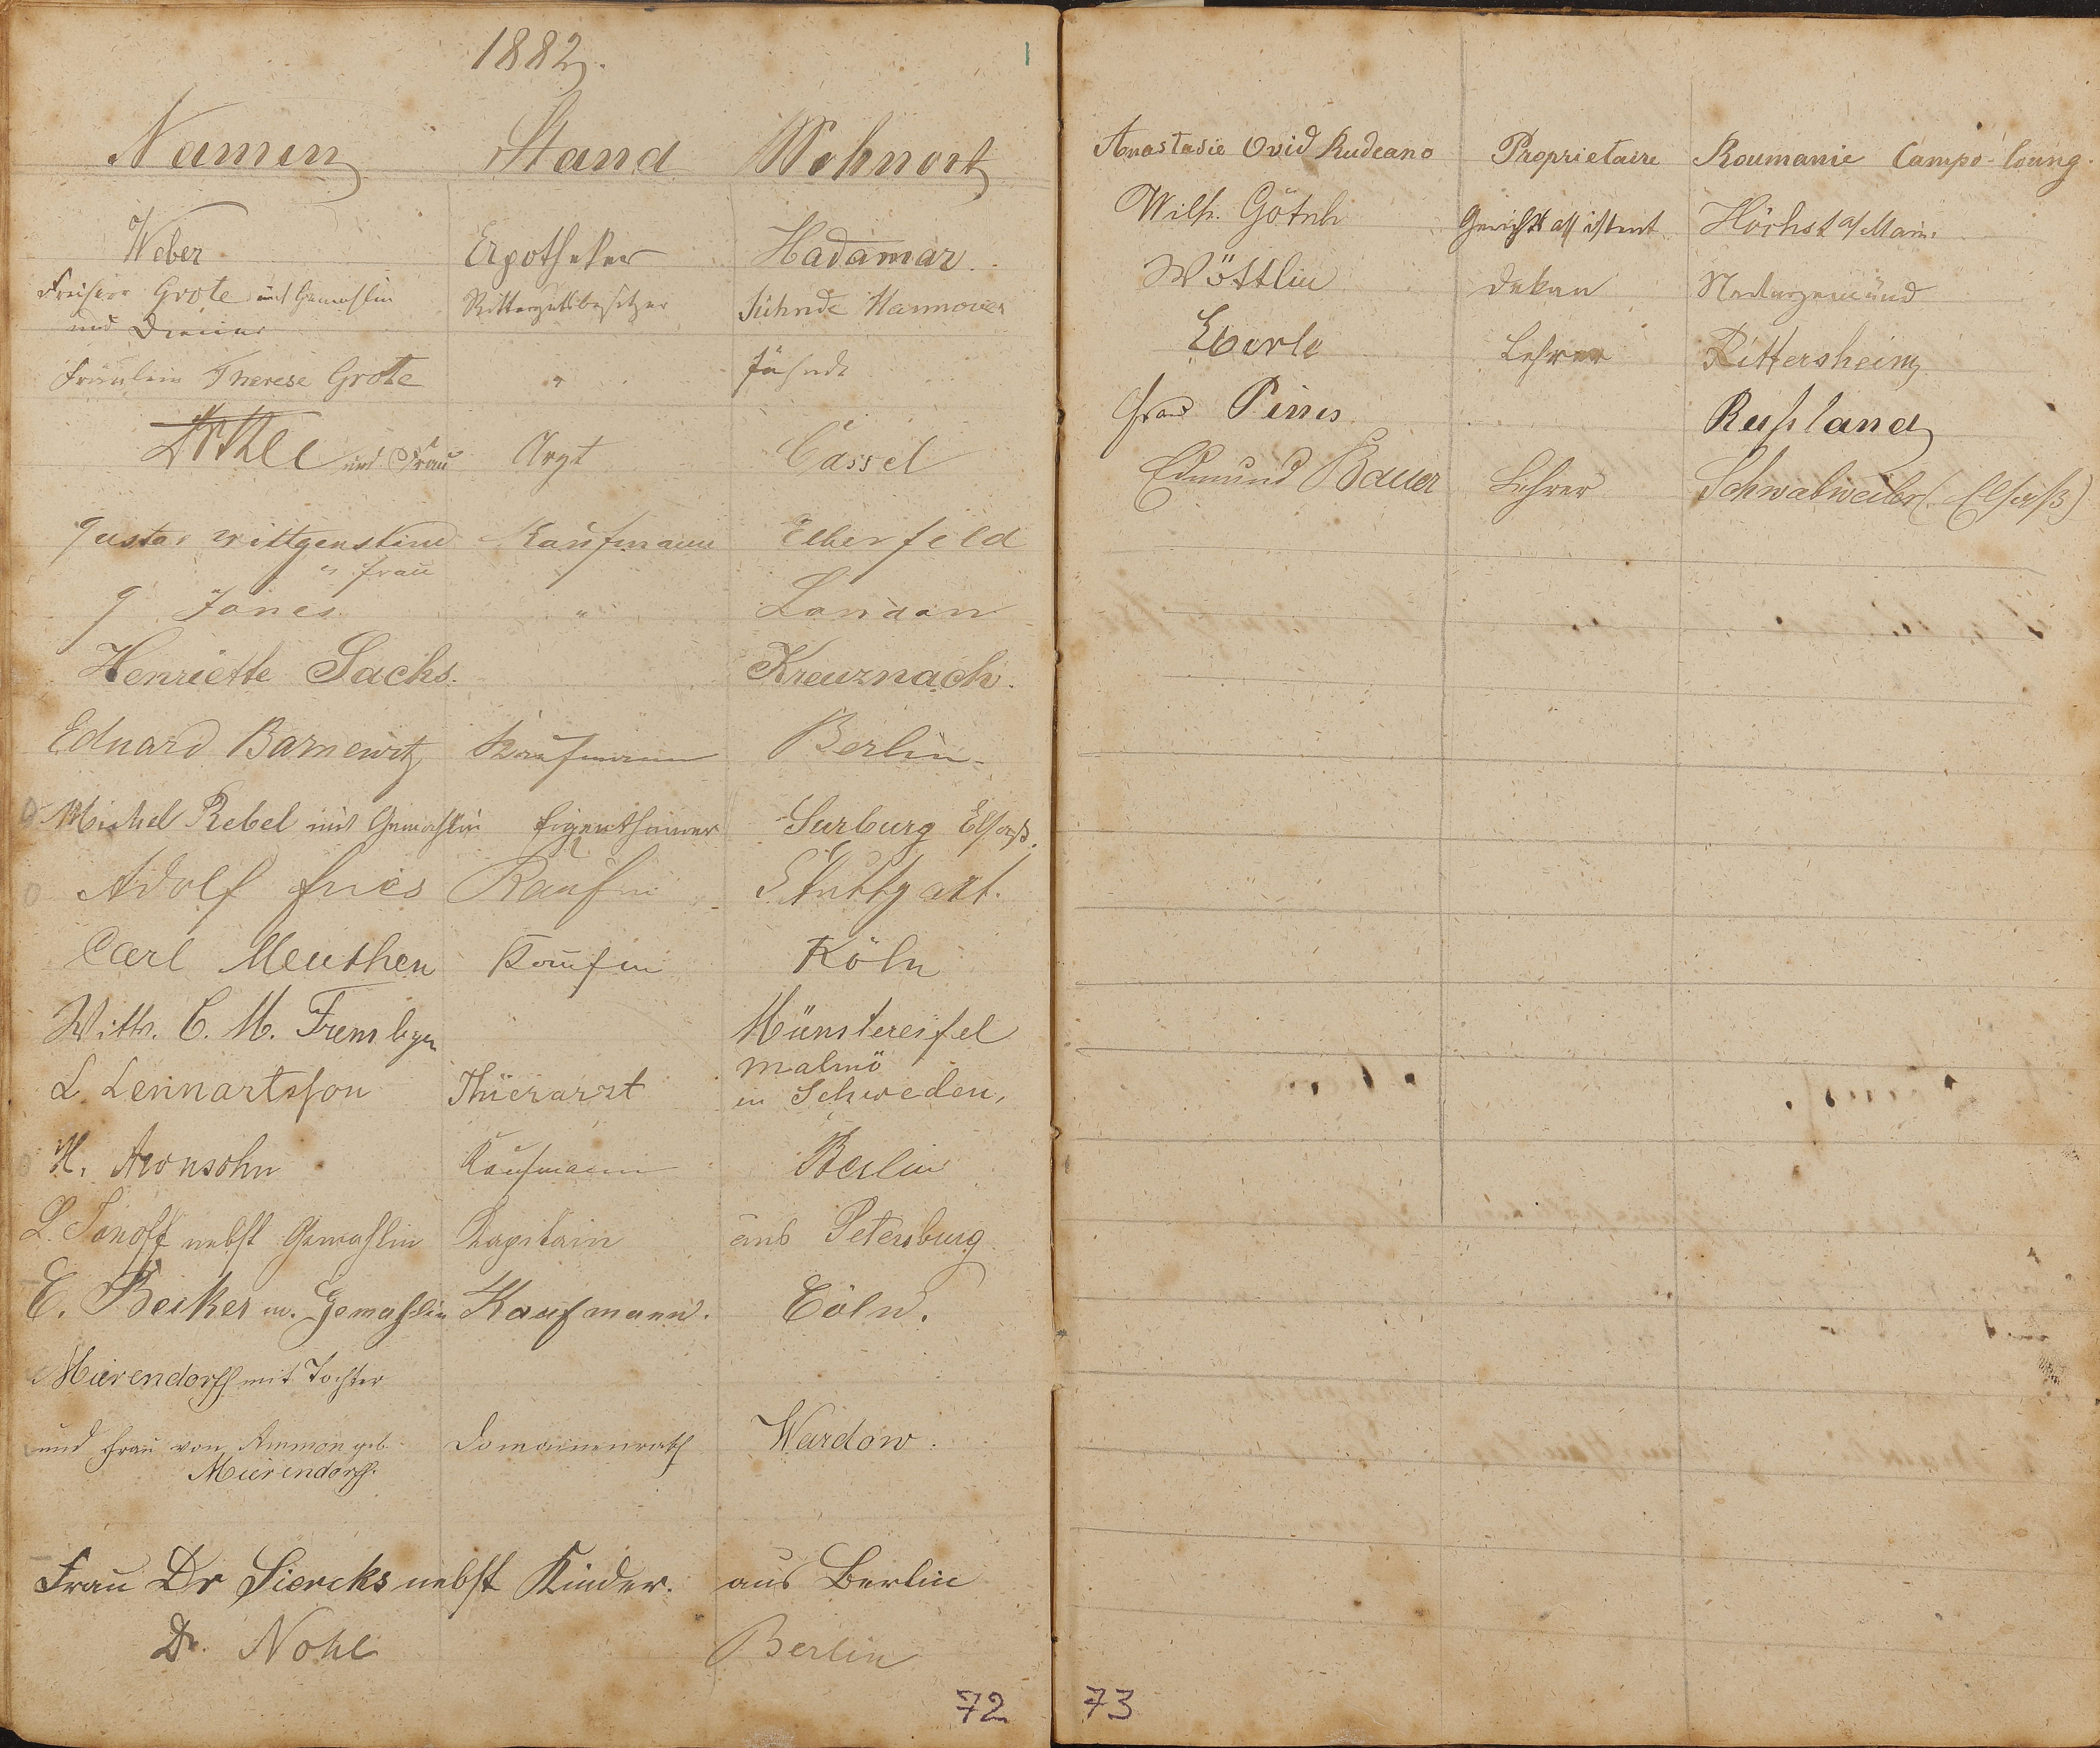 1882.
Namen Stand Wohnort
Weber Apotheker Hadamar.
Freiherr Grote und Gemahlin Rittergutsbesitzer Jühnde Hannover
und Diener
Fräulein Therese Grote " Jühnde
und Frau Arzt Cassel
Gustav Wittgenstein Kaufmann Elberfeld
" Frau
G Jones " London
Henriette Sachs. Kreuznach.
Eduard Barnewitz Kaufmann Berlin.
Michel Rebel mit Gemahlin Eigenthümer Surburg Elsaß.
Adolf Fries Kaufm Stuttgart.
Carl Meuthen Kaufm Köln
Wittw. C. M. Münstereifel
L. Lennartsson Thierarzt Malmö
in Schweden,
H. Aronsohn Kaufmann Berlin
L. Sonoff nebst Gemahlin Kapitain aus Petersburg
E. Becker m. Gemahlin Kaufmann. Cöln.
Mierendorff mit Tochter
und Frau von Ammon geb. Domainenrath Wardow.
Mierendorff.
Frau Dr Siercks nebst Kinder. aus Berlin
Dr. Nohl Berlin
72
Anastasie Ovid Rudeano Proprietaire Roumanie Campo-loung.
Wilh. Gerichtsassistent Höchst a/Main.
Wöttlin Dekan Neckargemünd
Eberle Lehrer Rittersheim
Frau Pines Rußland
Edmund Bauer Lehrer Schwabweiler (Elsaß)
73